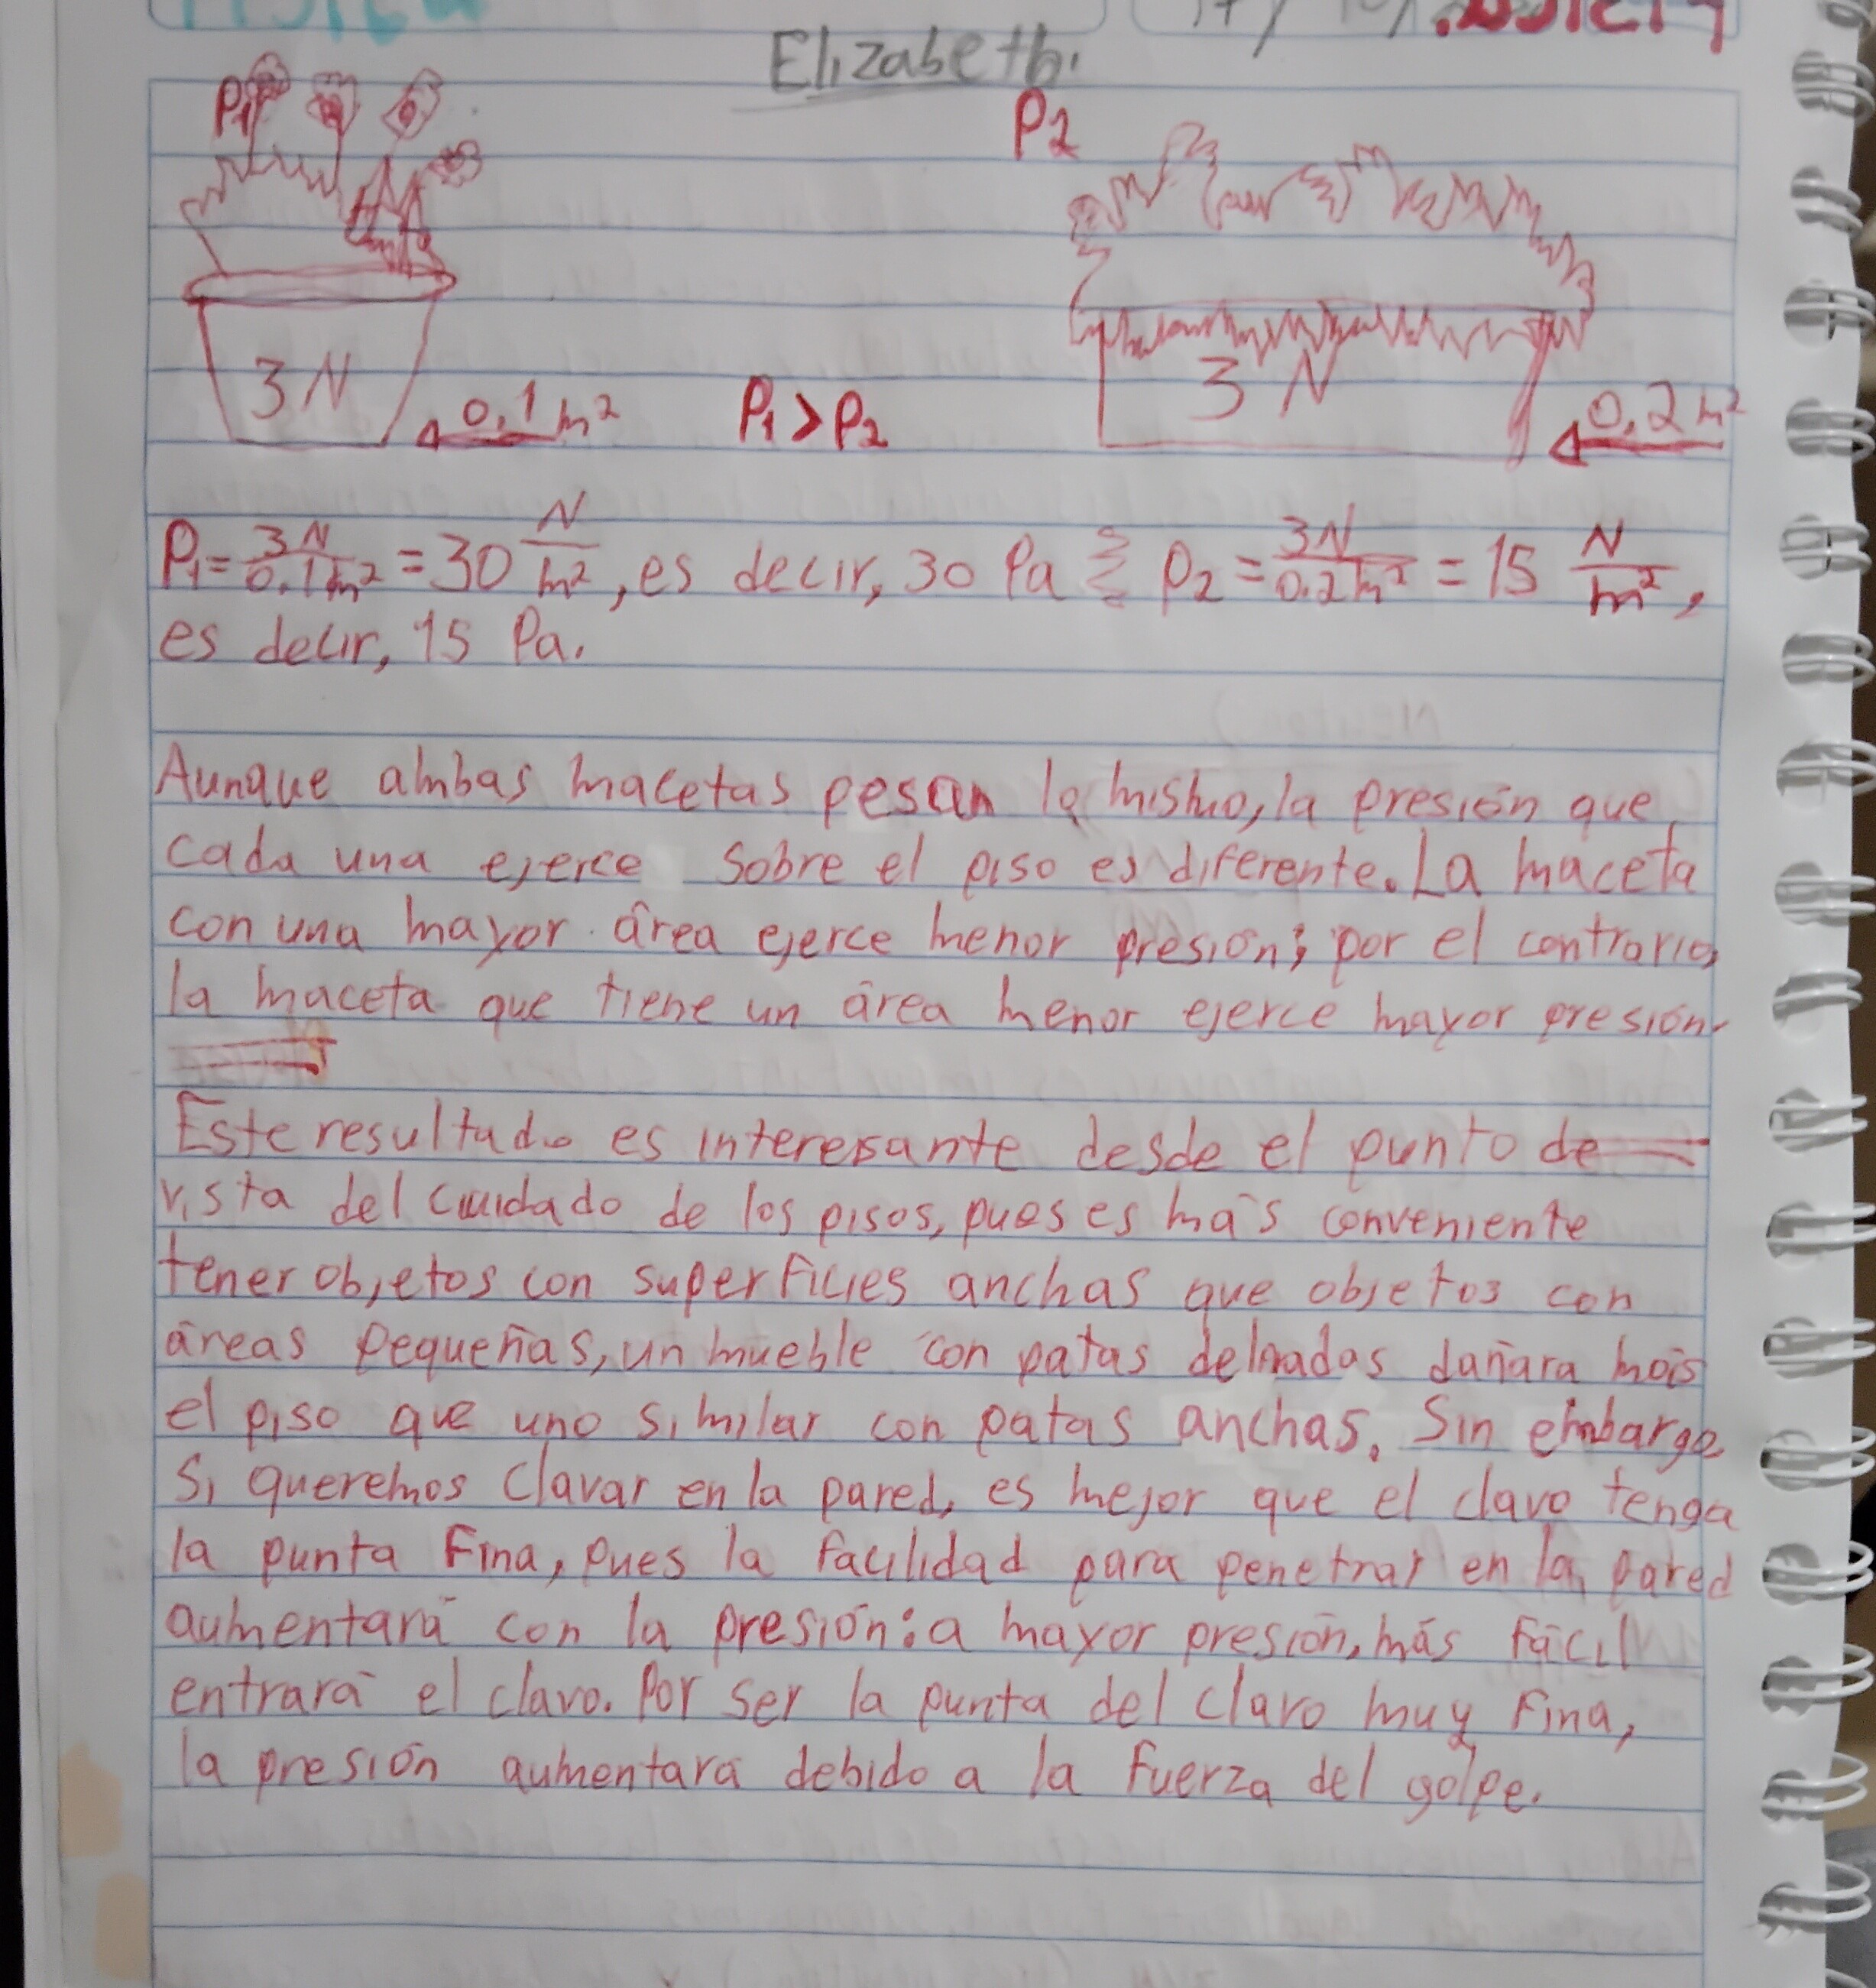 Elizabeth.
P1 P2
3 N 3 N
0.1 m² P₁ > P₂ 0.2 m²
P₁ = 3 N / 0.1 m² = 30 N / m², es decir, 30 Pa P₂ = 3 N / 0.2 m² = 15 N / m²,
es decir, 15 Pa.
Aunque ambas macetas pesan lo mismo, la presión que
cada una ejerce sobre el piso es diferente. La maceta
con una mayor área ejerce menor presión; por el contrario,
la maceta que tiene un área menor ejerce mayor presión.
Este resultado es interesante desde el punto de
vista del cuidado de los pisos, pues es más conveniente
tener objetos con superficies anchas que objetos con
áreas pequeñas, un mueble con patas delgadas dañara más
el piso que uno similar con patas anchas. Sin embargo
si queremos clavar en la pared, es mejor que el clavo tenga
la punta fina, pues la facilidad para penetrar en la pared
aumentará con la presión: a mayor presión, más fácil
entrará el clavo. Por ser la punta del clavo muy fina,
la presión aumentará debido a la fuerza del golpe.